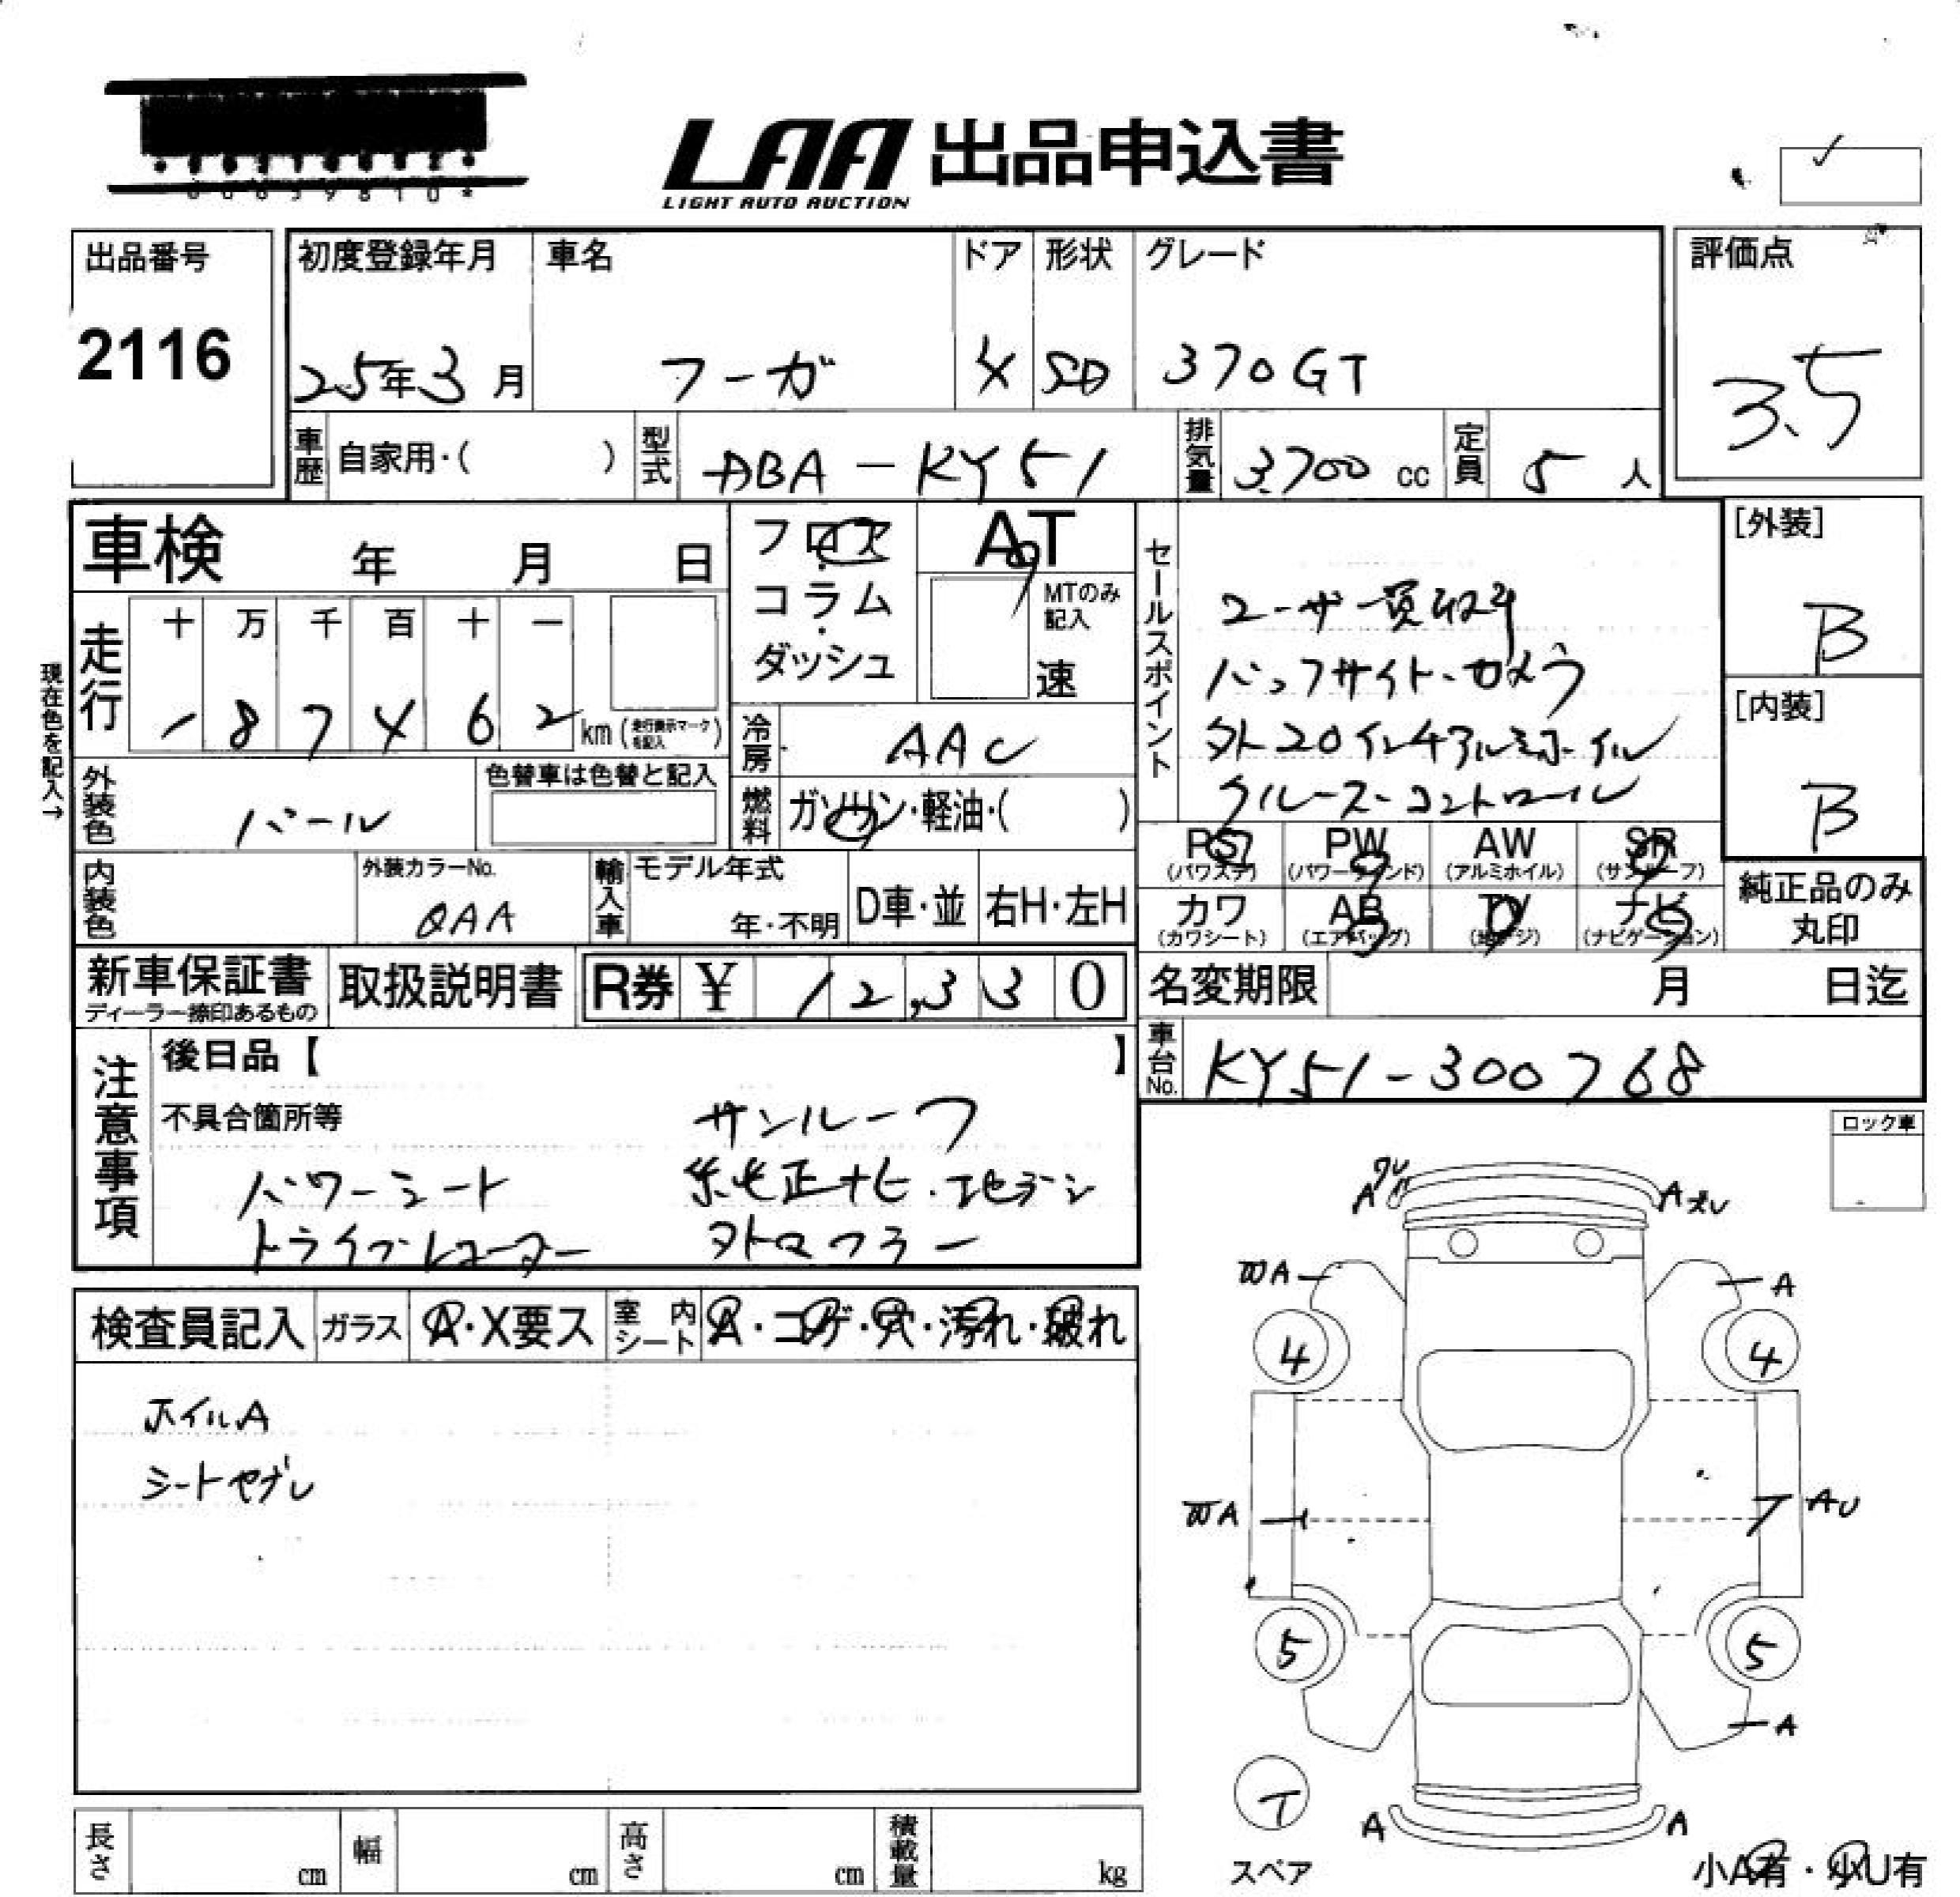 LAA 出品申込書
LIGHT AUTO AUCTION
出品番号
2116
初度登録年月
25年3月
車名
フーガ
ドア
4
形状
SD
グレード
370GT
評価点
3.5
車歴 自家用・( )
型式 DBA-KY51
排気量 3,700 cc
定員 5人
車検 年 月 日
フロア・
コラム・
ダッシュ
AT
MTのみ
記入
速
セールスポイント
ユーザー買取車
バックサイト・カメラ
外20インチアルミホイル
クルーズ・コントロール
[外装]
B
[内装]
B
現在色を記入→
走行
十 万 千 百 十 一
1 8 7 4 6 2 km (走行表示マークを記入)
冷房 AAC
外装色 パール
色替車は色替と記入
燃料 ガソリン・軽油・( )
内装色
外装カラーNo.
QAA
輸入車
モデル年式
年・不明
D車・並
右H・左H
PS (パワステ)
PW (パワーウインド)
AW (アルミホイル)
SR (サンルーフ)
カワ (カワシート)
AB (エアバッグ)
TV (地デジ)
ナビ (ナビゲーション)
純正品のみ
丸印
新車保証書
ディーラー捺印あるもの
取扱説明書
R券 ¥ 12,330
名変期限 月 日迄
車台No. KY51-300768
注意事項
後日品【 】
不具合箇所等
サンルーフ
パワーシート 純正ナビ・エセテン
ドライブレコーダー 外マフラー
ロック車
検査員記入
ガラス A・X要ス
室内シート A・コゲ・穴・汚れ・破れ
ホイルA
シートヤブレ
A
A
A
A
4
4
A
AU
5
5
A
T
スペア
A
A
小A有・小U有
長さ cm
幅 cm
高さ cm
積載量 kg